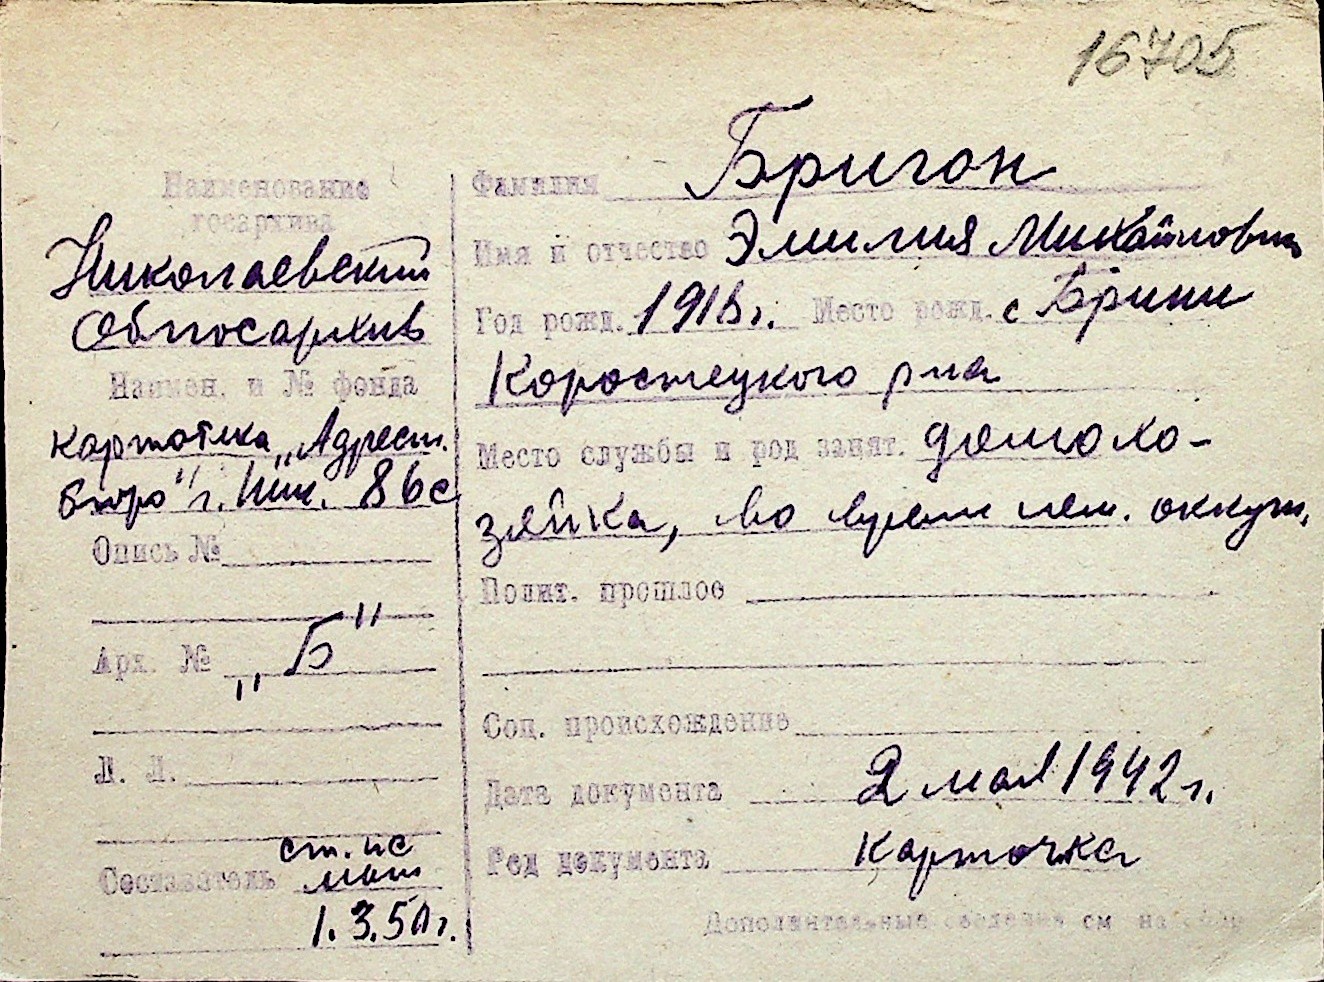 16705
Наименование
госархива
Николаевский
Облгосархив
Наимен. и № фонда
картотека „Адресн.
бюро" г. Ник.
Опись №
Арх. № „Б"
Л. Л.
Составитель ст. нс
1. 3. 50 г.
Фамилия Бригон
Имя и отчество Эмилия Михайловна
Год рожд. Место рожд. с
Коростецкого р-на
Место службы и род занят. домохо-
зяйка, во время нем. оккуп.
Полит. прошлое
Соц. происхождение
Дата документа 2 мая 1942 г.
Род документа карточка
Дополнительные сведения см на